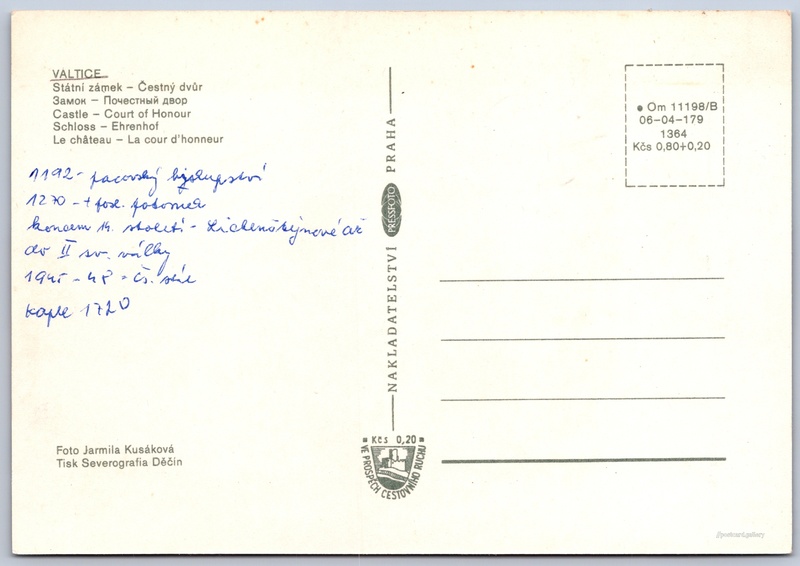 VALTICE
Státní zámek – Čestný dvůr
Замок – Почестный двор
Castle – Court of Honour
Schloss – Ehrenhof
Le château – La cour d'honneur
1192 - pacovský biskupství
1270 - + posl. potomek
koncem 14. století - Lichenštejnové až
do II sv. války
1945 - 48 - čs. stát
kaple 1720
Foto Jarmila Kusáková
Tisk Severografia Děčín
NAKLADATELSTVÍ PRESSFOTO PRAHA
Kčs 0,20
VE PROSPĚCH CESTOVNÍHO RUCHU
● Om 11198/B
06-04-179
1364
Kčs 0,80+0,20
postcard.gallery